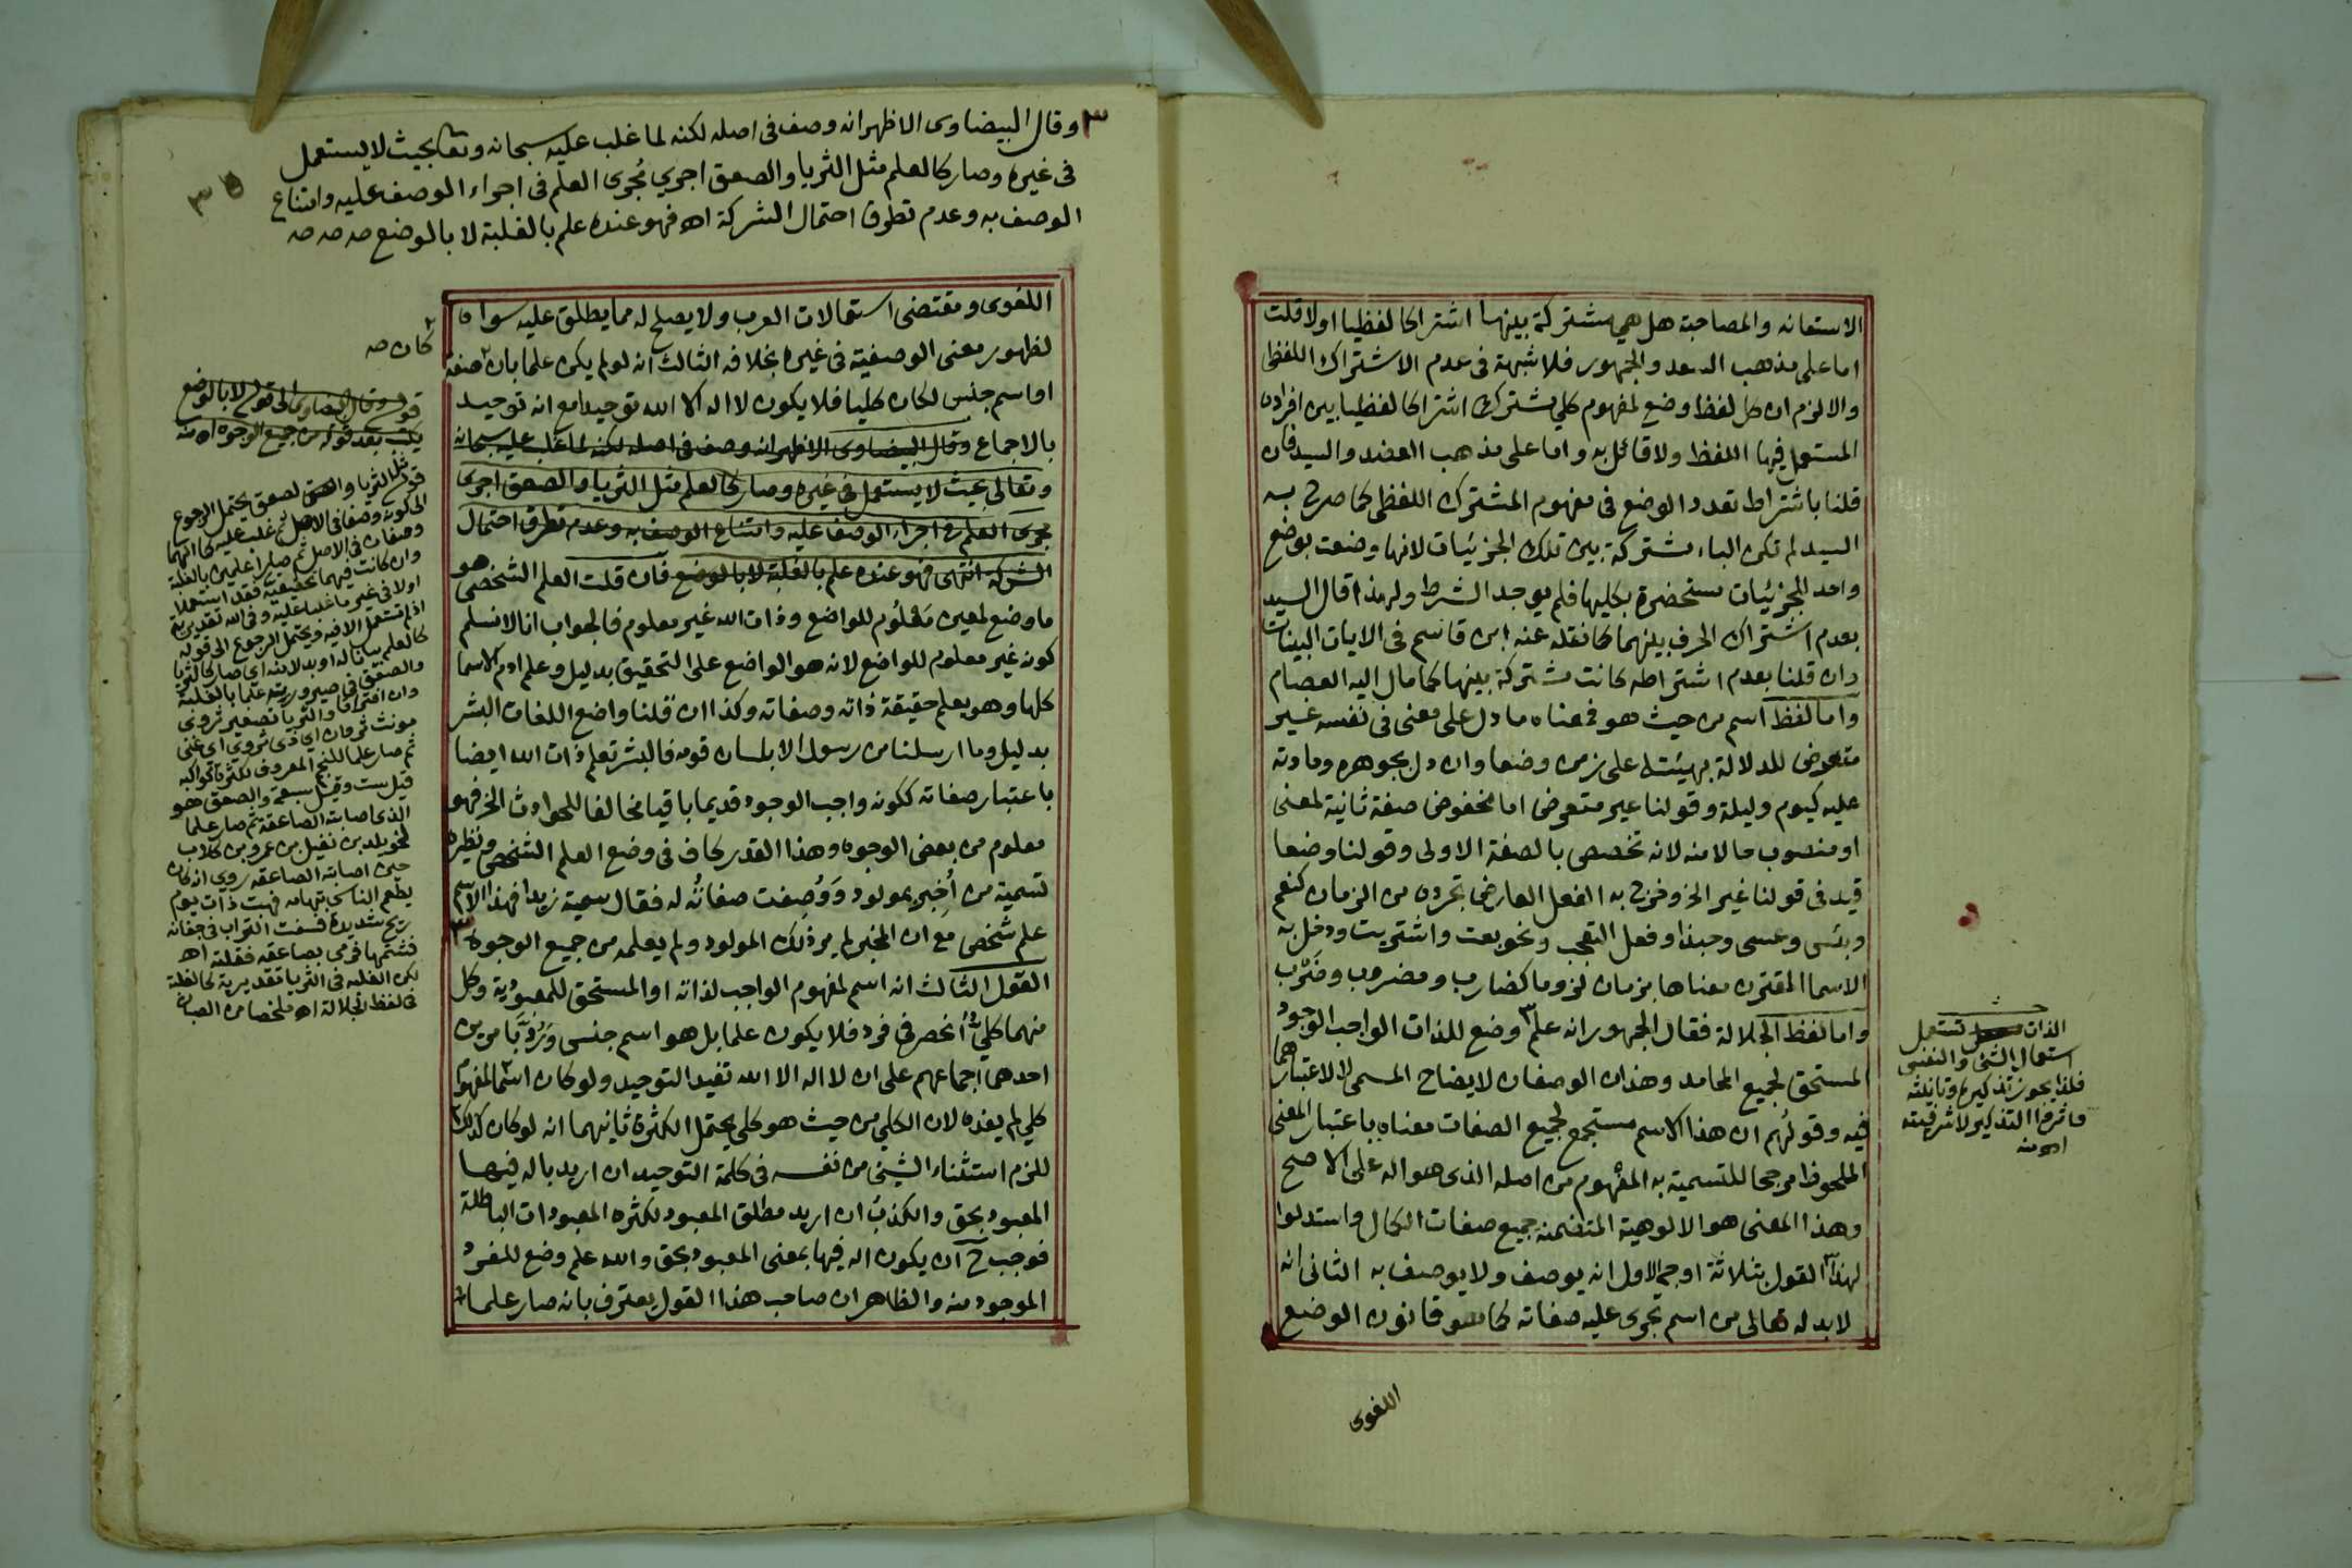 الاستعانه والمصاحبة هل هي مشتركة بينها اشتراكا لفظيا اولا قلت
اما على مذهب السعد والجمهور فلا شبهة فى عدم الاشتراك اللفظى
والا لزم ان كل لفظ وضع لمفهوم كلي مشترك اشتراكا لفظيا بين افراده
المستعمل فيها اللفظ ولا قائل به واما على مذهب العضد والسيد فان
قلنا باشتراط تعدد الوضع فى مفهوم المشترك اللفظى كما صرح به
السيد لم تكن الباء مشتركة بين تلك الجزئيات لانها وضعت بوضع
واحد للجزئيات مستحضرة بكليها فلم يوجد الشرط ولهذا قال السيد
بعدم اشتراك الحرف بينهما كما نقله عنه ابن قاسم فى الايات البينات
وان قلنا بعدم اشتراطه كانت مشتركة بينها كما مال اليه العصام
واما لفظ اسم من حيث هو فمعناه ما دل على معنى فى نفسه غير
متعرض للدلالة بهيئته على زمن وضعا وان دل بجوهره ومادته
عليه كيوم وليلة وقولنا غير متعرض اما مخفوض صفة ثانية لمعنى
او منصوب حالا منه لانه تخصص بالصفة الاولى وقولنا وضعا
قيد فى قولنا غير الخ وخرج به الفعل العارض تجرده من الزمان كنعم
وبئس وعسى وحبذا وفعل التعجب ونحو بعت واشتريت ودخل به
الاسما المقترن معناها بزمان لزوما كضارب ومضروب وضرب
واما لفظ الجلالة فقال الجمهور انه علم وضع للذات الواجب الوجود
المستحق لجميع المحامد وهذان الوصفان لايضاح المسمى لا لاعتبارهما
فيه وقولهم ان هذا الاسم مستجمع لجميع الصفات معناه باعتبار المعنى
الملحوظ مرجحا للتسمية به المفهوم من اصله الذى هو اله على الاصح
وهذا المعنى هو الالوهية المتضمنة جميع صفات الكمال واستدلوا
لهذا القول بثلاثة اوجه الاول انه يوصف ولا يوصف به الثانى انه
لابد له تعالى من اسم تجرى عليه صفاته كما هو قانون الوضع
اللغوى
الذات تستعمل
استعمال الشئ والنفس
فلذا يجوز تذكيره وتانيثه
واثرنا التذكير لاشرفيته
اه منه
٣ وقال البيضاوى الاظهر انه وصف فى اصله لكنه لما غلب عليه سبحانه وتعا بحيث لا يستعمل
فى غيره وصار كالعلم مثل الثريا والصعق اجري مُجرى العلم فى اجراء الوصف عليه وامتناع
الوصف به وعدم تطرق احتمال الشركة اه فهو عنده علم بالغلبة لا بالوضع صه صه صه
اللغوى ومقتضى استعمالات العرب ولا يصلح له مما يطلق عليه سواه
لظهور معنى الوصفية فى غيره بخلافه الثالث انه لو لم يكن علما بان صفة
او اسم جنس لكان كليا فلا يكون لا اله الا الله توحيدا مع انه توحيد
بالاجماع وقال البيضاوى الاظهر انه وصف فى اصله لكنه لما غلب عليه سبحانه
وتعالى بحيث لا يستعمل فى غيره وصار كالعلم مثل الثريا والصعق اجرى
مجرى العلم فى اجراء الوصف عليه وامتناع الوصف به وعدم تطرق احتمال
الشركة انتهى فهو عنده علم بالغلبة لا بالوضع فان قلت العلم الشخصى هو
ما وضع لمعين معلوم للواضع وذات الله غير معلوم فالجواب انا لا نسلم
كونه غير معلوم للواضع لانه هو الواضع على التحقيق بدليل وعلم ادم الاسما
كلها وهو يعلم حقيقة ذاته وصفاته وكذا ان قلنا واضع اللغات البشر
بدليل وما ارسلنا من رسول الا بلسان قومه فالبشر تعلم ذات الله ايضا
باعتبار صفاته ككونه واجب الوجود قديما باقيا مخالفا للحوادث الخ فهو
معلوم من بعض الوجوه وهذا القدر كاف فى وضع العلم الشخصى ونظيره
تسمية من أخبر بمولود ووُصفت صفاتُه له فقال سميته زيدا فهذا الاسم
علم شخصى مع ان المخبر لم ير ذلك المولود ولم يعلمه من جميع الوجوه ٣
القول الثالث انه اسم لمفهوم الواجب لذاته او المستحق للمعبودية وكل
منهما كلي انحصر فى فرد فلا يكون علما بل هو اسم جنس ورُد بامرين
احدهما اجماعهم على ان لا اله الا الله تفيد التوحيد ولو كان اسما لمفهوم
كلي لم يفده لان الكلي من حيث هو كلي يحتمل الكثرة ثانيهما انه لو كان كذلك
للزم استثناء الشيئ من نفسه فى كلمة التوحيد ان اريد باله فيها
المعبود بحق والكذب ان اريد مطلق المعبود لكثره المعبودات الباطلة
فوجب ح ان يكون اله فيها بمعنى المعبود بحق والله علم وضع للمفرد
الموجود منه والظاهر ان صاحب هذا القول يعترف بانه صار علما
كان صه
قوله وقال البيضاوى الى قوله لا بالوضع
يكتب بعد قوله من جميع الوجوه اه منه
قوله مثل الثريا والصعق يحتمل الرجوع
الى كونه وصفا فى الاصل ثم غلب عليه كما انهما
وصفان فى الاصل ثم صارا علمين بالغلبة
وان كانت فيهما تحقيقية فقد استعملا
اولا فى غير ما غلبا عليه وفى الله تقديرية
اذ لم تستعمل الا فيه ويحتمل الرجوع الى قوله
كالعلم بيانا له او بدلا منه اي صار كالثريا
والصعق فى صيرورته علما بالغلبة
وان افترقا والثريا تصغير ثروى
مونث ثروان اي ذى ثروة اى غنى
ثم صار علما للنجم المعروف لكثرة كواكبه
قيل ست وقيل سبعة والصعق هو
الذى اصابته الصاعقة ثم صار علما
لخويلد بن نفيل بن عمرو بن كلاب
حين اصابته الصاعقه روى انه كان
يطعم الناس بتهامه فهبت ذات يوم
ريح شديدة فسفت التراب فى جفانه
فشتمها فرمى بصاعقه فقتلته اه
لكن الغلبه فى الثريا تقديرية كالغلبة
فى لفظ الجلالة اه ملخصا من الصبان